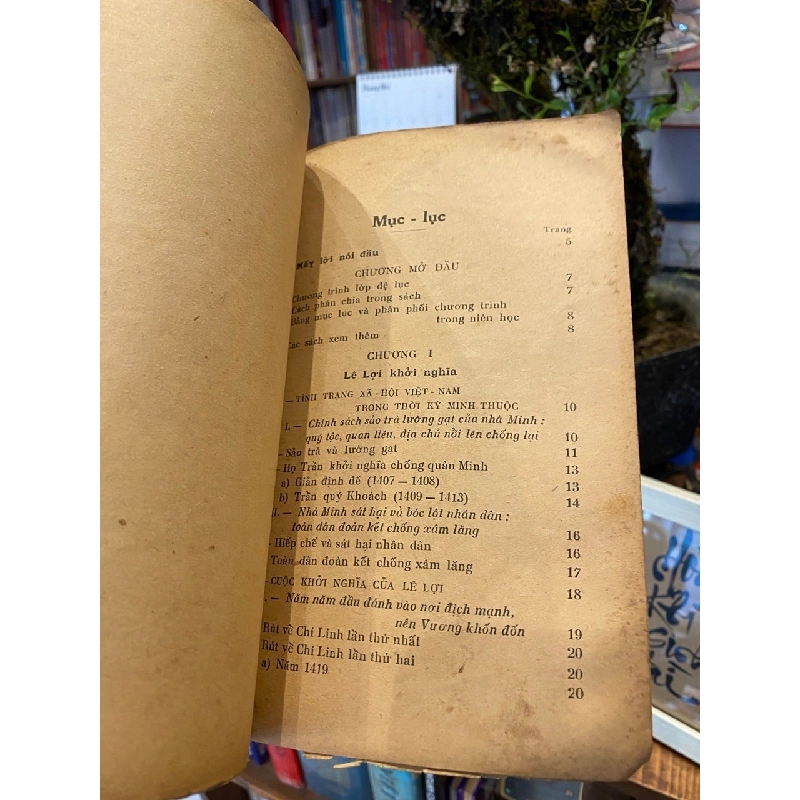 Mục - lục
Trang
Mấy lời nói đầu 5
CHƯƠNG MỞ ĐẦU
Chương trình lớp đệ lục 7
Cách phân chia trong sách 7
Bảng mục lục và phân phối chương trình
trong niên học 8
Các sách xem thêm 8
CHƯƠNG I
Lê Lợi khởi nghĩa
— TÌNH TRẠNG XÃ - HỘI VIỆT - NAM
TRONG THỜI KỲ MINH THUỘC 10
I. — Chính sách sảo trá lường gạt của nhà Minh :
quý tộc, quan liêu, địa chủ nồi lên chống lại 10
- Sảo trá và lường gạt 11
- Họ Trần khởi nghĩa chống quân Minh 13
a) Giản định đế (1407 — 1408) 13
b) Trần quý Khoách (1409 — 1413) 14
II. — Nhà Minh sát hại và bóc lột nhân dân :
toàn dân đoàn kết chống xâm lăng 16
- Hiếp chế và sát hại nhân dân 16
Toàn dân đoàn kết chống xâm lăng 17
- CUỘC KHỞI NGHĨA CỦA LÊ LỢI 18
. — Năm năm đầu đánh vào nơi địch mạnh,
nên Vương khốn đốn 19
Rút về Chí Linh lần thứ nhất 20
Rút về Chí Linh lần thứ hai 20
a) Năm 1419 20